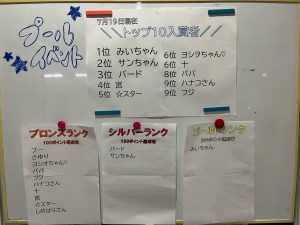 プール
イベント
7月19日現在
トップ10入賞者
1位 みいちゃん
2位 サンちゃん
3位 バード
4位 宮
5位 ☆スター
6位 ヨシヲちゃん♡
6位 十
8位 ババ
9位 ハナコさん
9位 フジ
ブロンズランク
100ポイント達成者
プー
さゆり
ヨシヲちゃん♡
ババ
フジ
ハナコさん
十
宮
☆スター
しめはりさん
シルバーランク
150ポイント達成者
バード
サンちゃん
ゴールドランク
200ポイント達成者
みいちゃん